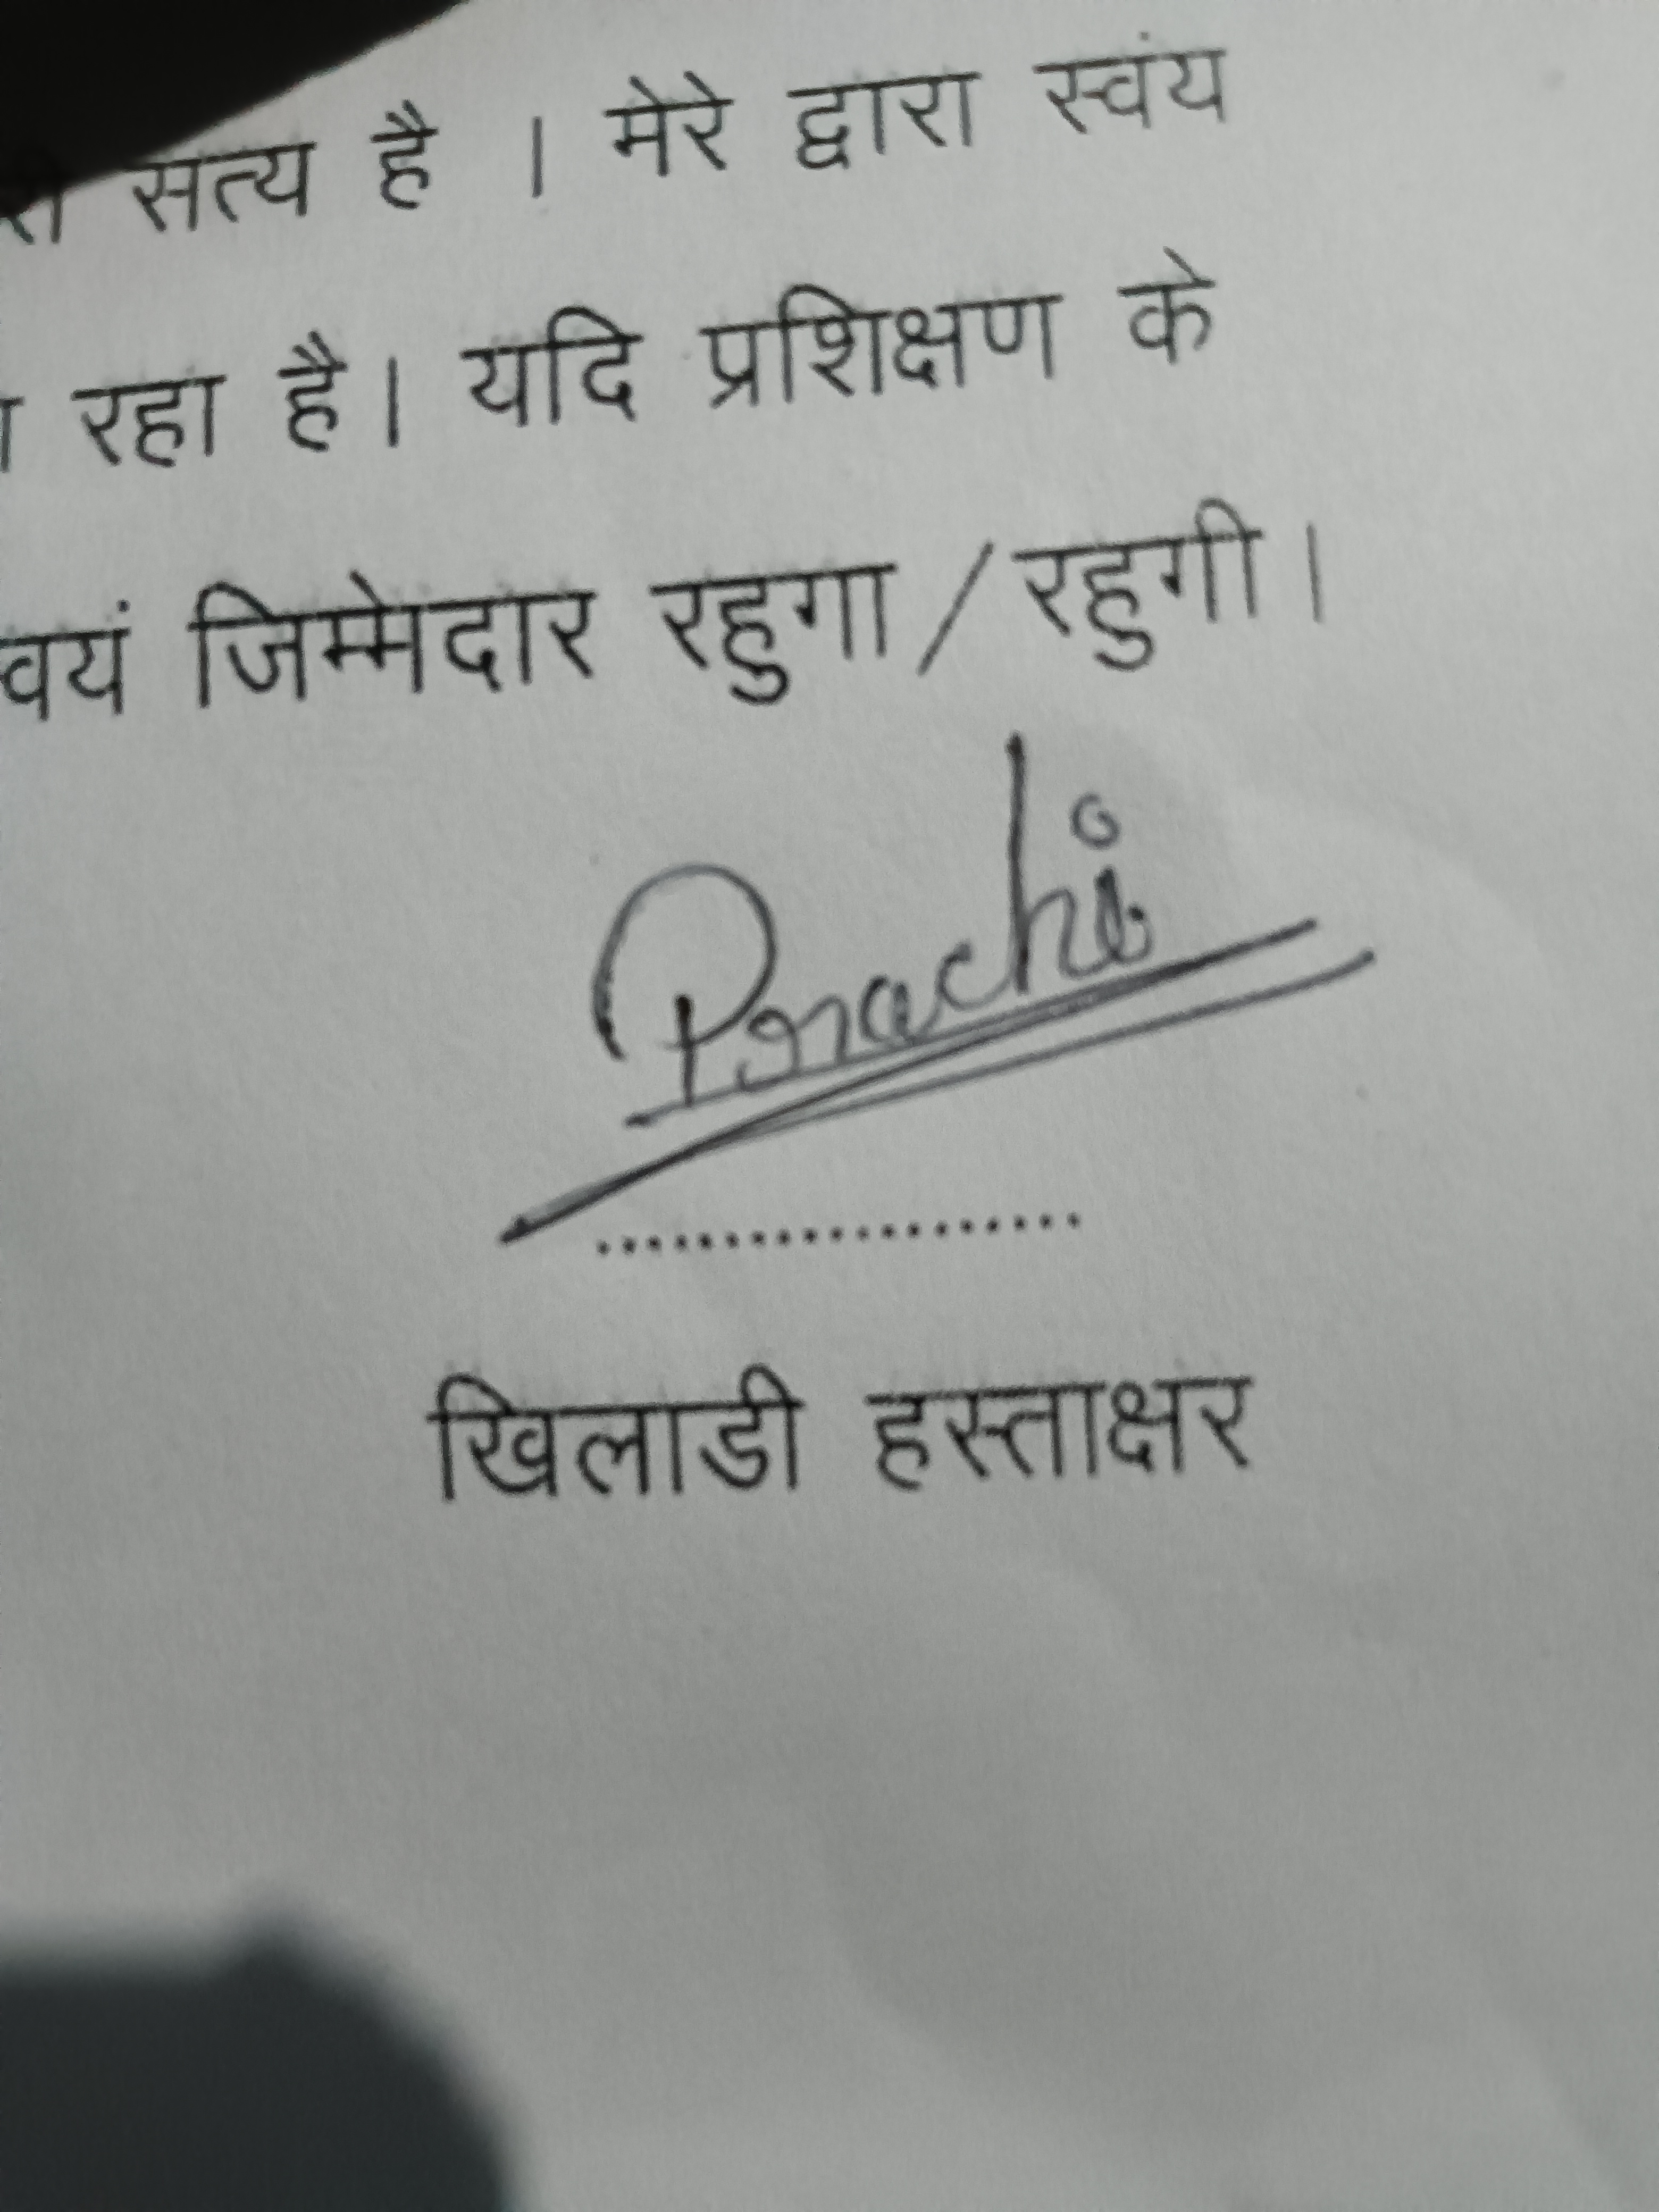 सत्य है । मेरे द्वारा स्वंय
रहा है। यदि प्रशिक्षण के
जिम्मेदार रहुगा / रहुगी।
Prachi
...................
खिलाडी हस्ताक्षर